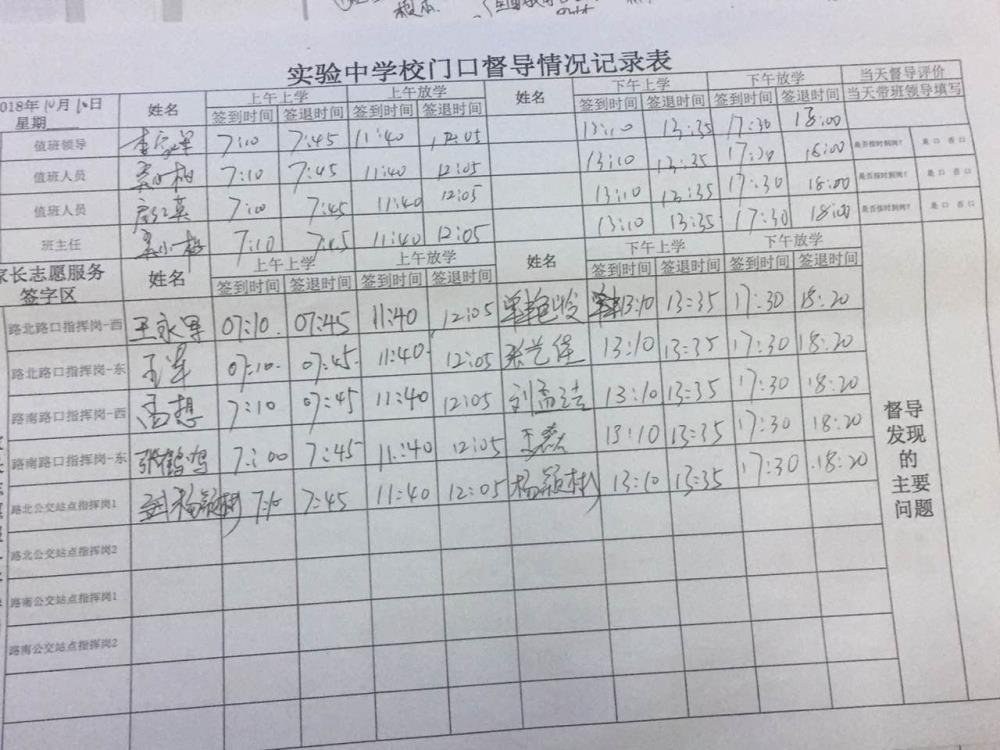 实验中学校门口督导情况记录表
2018年10月10日 星期 姓名 上午上学 上午放学 姓名 下午上学 下午放学 当天督导评价
签到时间 签退时间 签到时间 签退时间 签到时间 签退时间 签到时间 签退时间 当天带班领导填写
值班领导 7:10 7:45 11:40 12:05 13:10 13:35 17:30 18:00
值班人员 7:10 7:45 11:40 12:05 13:10 13:35 17:30 18:00 是否按时到岗? 是口 否口
值班人员 7:10 7:45 11:40 12:05 13:10 13:35 17:30 18:00 是否按时到岗? 是口 否口
班主任 7:10 7:45 11:40 12:05 13:10 13:35 17:30 18:00 是否按时到岗? 是口 否口
家长志愿服务 签字区 姓名 上午上学 上午放学 姓名 下午上学 下午放学
签到时间 签退时间 签到时间 签退时间 签到时间 签退时间 签到时间 签退时间
路北路口指挥岗-西 王永军 07:10. 07:45 11:40 12:05 13:10 13:35 17:30 18:20
路北路口指挥岗-东 王军 07:10. 07:45. 11:40. 12:05 13:10 13:35 17:30 18:20
路南路口指挥岗-西 高想 7:10 07:45 11:40 12:05 13:10 13:35 17:30 18:20
路南路口指挥岗-东 张鹤鸣 7:00 7:45 11:40 12:05 王磊 13:10 13:35 17:30 18:20
路北公交站点指挥岗1 杨颖彬 7:10 7:45 11:40 12:05 杨颖彬 13:10 13:35 17:30 18:20
路北公交站点指挥岗2
路南公交站点指挥岗1
路南公交站点指挥岗2
督导
发现
的
主要
问题